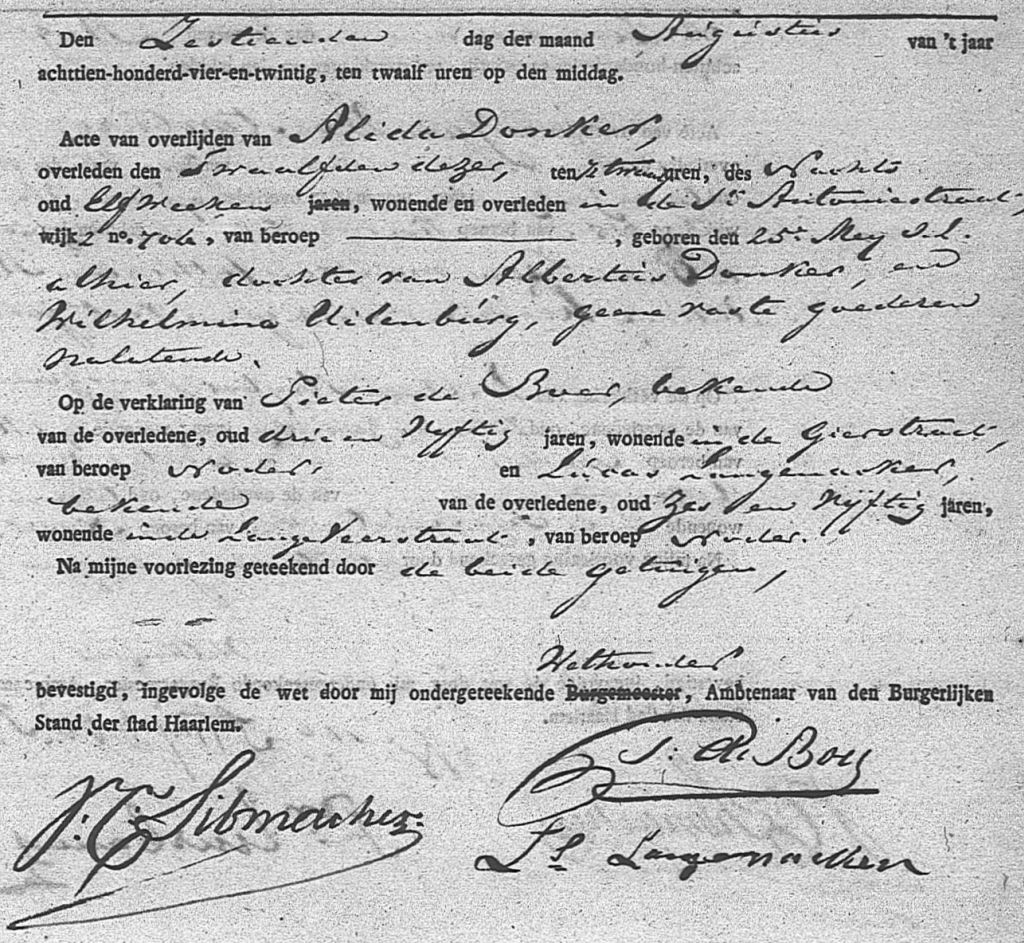 Den Zestienden dag der maand Augustus van 't jaar
achttien-honderd-vier-en-twintig, ten twaalf uren op den middag.
Acte van overlijden van Alida Donker,
overleden den Twaalfden dezer, ten uren, des Nachts
oud Elf Weeken jaren, wonende en overleden in de St. Antoniestraat,
wijk 2 no. 706, van beroep ——— , geboren den 25e Mey d.j.
alhier, dochter van Albertus Donker, en
Wilhelmina Uilenburg, geene vaste goederen
nalatende.
Op de verklaring van Pieter de Boer, bekende
van de overledene, oud drie en Vyftig jaren, wonende in de Gierstraat,
van beroep en Lucas Langenacker,
bekende van de overledene, oud Zes en Vyftig jaren,
wonende in de Lange Veerstraat, van beroep
Na mijne voorlezing geteekend door de beide getuigen,
Wethouder
bevestigd, ingevolge de wet door mij ondergeteekende Burgemeester, Ambtenaar van den Burgerlijken
Stand der stad Haarlem.
P: de Boer
Sibmacher
Ls Langenacken